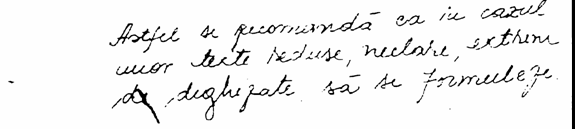 Astfel se recomandă ca în cazul
unor texte reduse, neclare, extrem
de deghizate să se formuleze